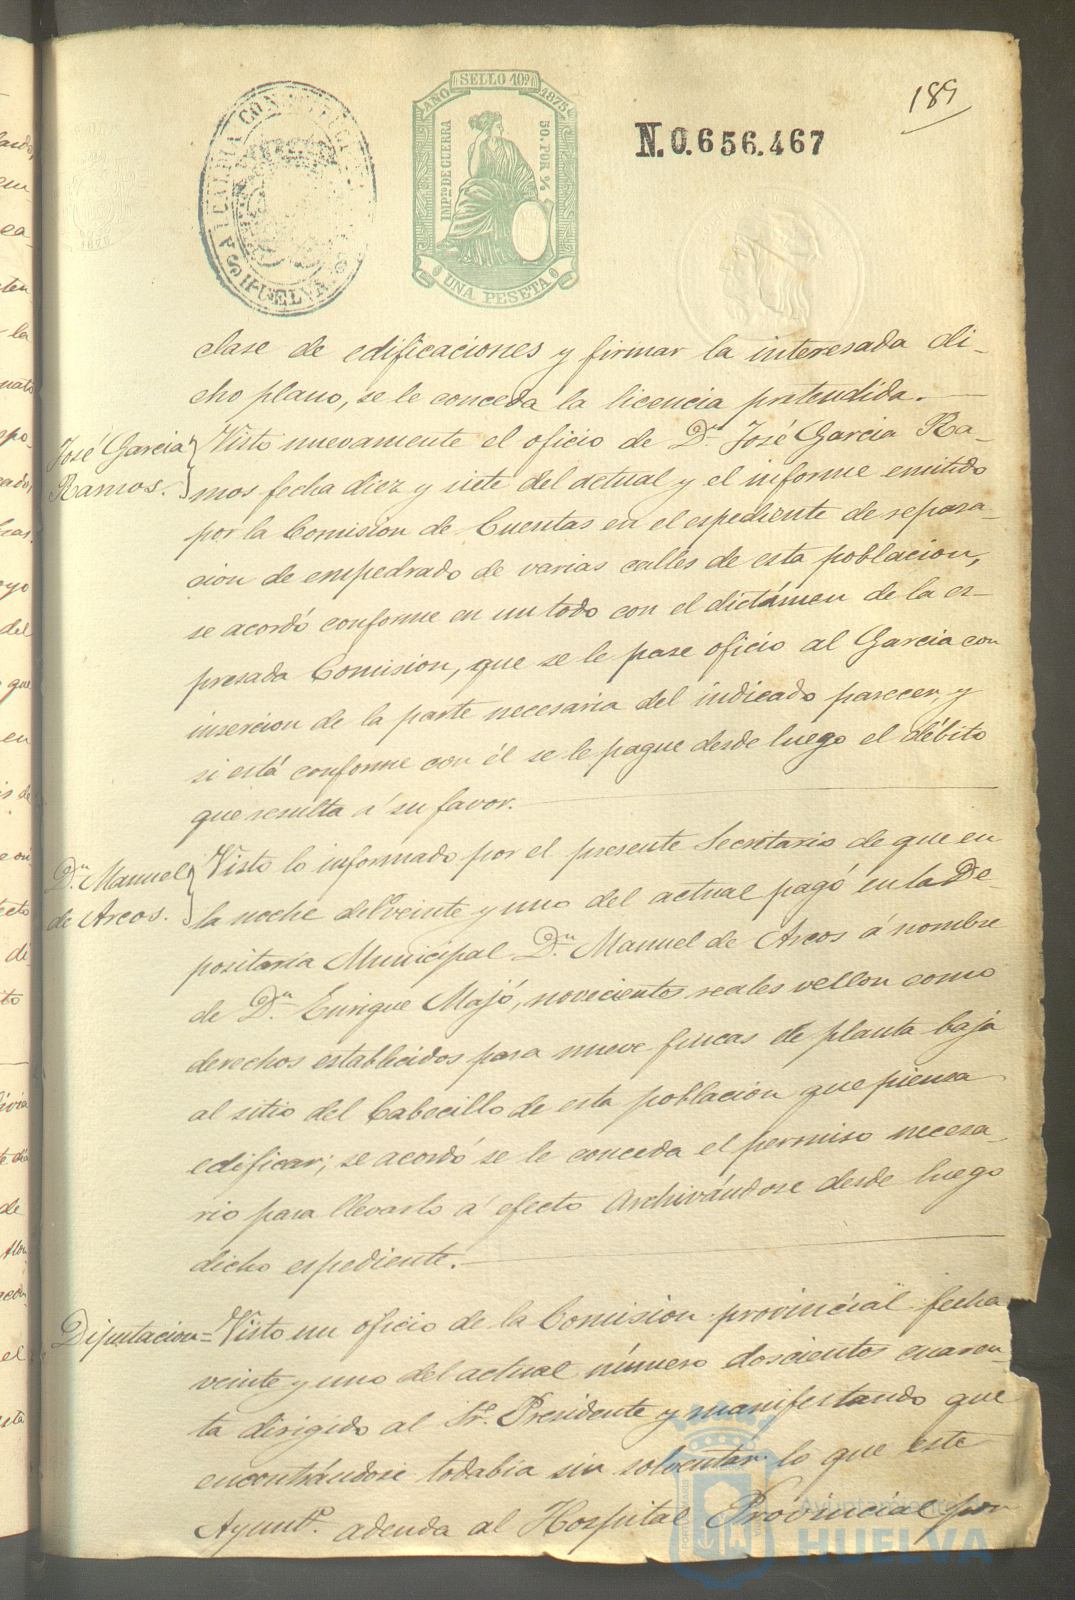 189
N.0.656.467
AÑO SELLO 10º 1875
IMPTO DE GUERRA
50. POR %
UNA PESETA
ALCALDIA CONSTITUCIONAL
HUELVA
clase de edificaciones y firmar la interesada di-
cho plano, se le conceda la licencia pretendida.
José Garcia
Ramos.
Visto nuevamente el oficio de Dn. José Garcia Ra-
mos fecha diez y siete del actual y el informe emitido
por la Comision de Cuentas en el espediente de repara-
cion de empedrado de varias calles de esta poblacion,
se acordó conforme en un todo con el dictámen de la es-
presada Comision, que se le pase oficio al Garcia con
insercion de la parte necesaria del indicado parecer, y
si está conforme con él se le pague desde luego el débito
que resulta á su favor.
Dn. Manuel
de Arcos.
Visto lo informado por el presente Secretario de que en
la noche del veinte y uno del actual pagó en la De-
positaria Municipal Dn. Manuel de Arcos a nombre
de Dn. Enrique Majó, novecientos reales vellon como
derechos establecidos para nueve fincas de planta baja
al sitio del Cabecillo de esta poblacion que piensa
edificar; se acordó se le conceda el permiso necesa-
rio para llevarlo á efecto Archivándose desde luego
dicho espediente.
Diputacion=
Visto un oficio de la Comision provincial fecha
veinte y uno del actual número doscientos cuaren-
ta dirigido al Sr. Presidente y manifestando que
encontrándose todabia sin solventar lo que este
Ayuntº. adeuda al Hospital Provincial por
Ayuntamiento de
HUELVA